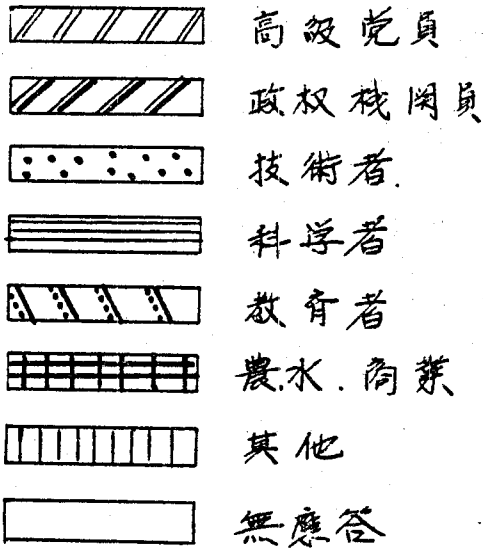 高級党員
政权機関員
技術者.
科学者
教育者
農.水.商業
其他
無應答